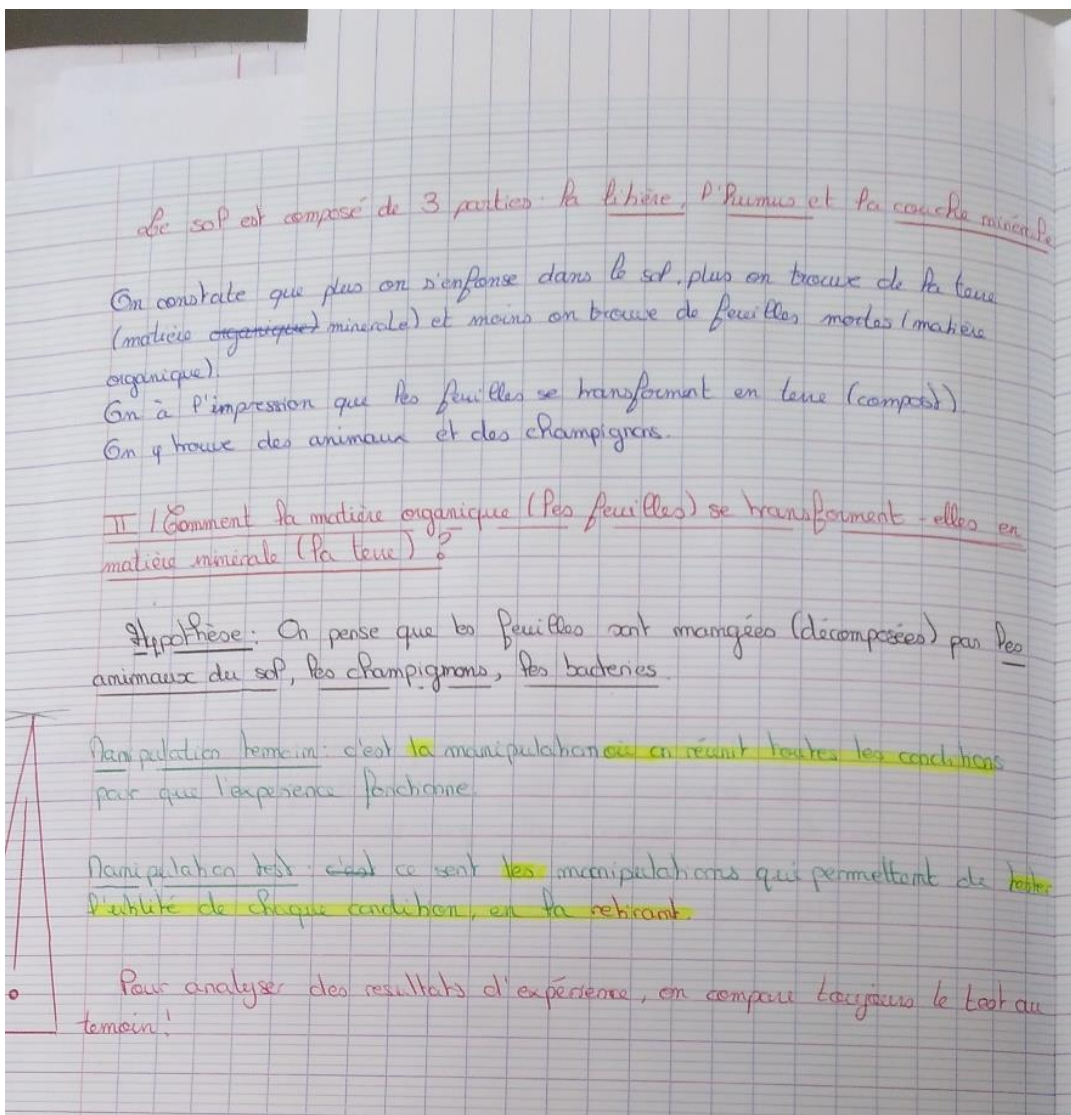 Le sol est composé de 3 parties : la litière, l'humus et la couche minérale
On constate que plus on s'enfonse dans le sol, plus on trouve de la terre
(matière organique) minerale) et moins on trouve de feuilles mortes (matière
organique).
On à l'impression que les feuilles se transforment en terre (compost)
On y trouve des animaux et des champignons.
II / Comment la matière organique (les feuilles) se transforment-elles en
matière minérale (la terre) ?
Hypothèse : On pense que les feuilles sont mangées (décomposées) par les
animaux du sol, les champignons, les bacteries.
Manipulation temoin : c'est la manipulation où on réunit toutes les conditions
pour que l'experience fonctionne.
Manipulation test : c'est ce sont les manipulations qui permettent de tester
l'utilité de chaque condition, en la retirant.
Pour analyser des resultats d'expérience, on compare toujours le test au
temoin !